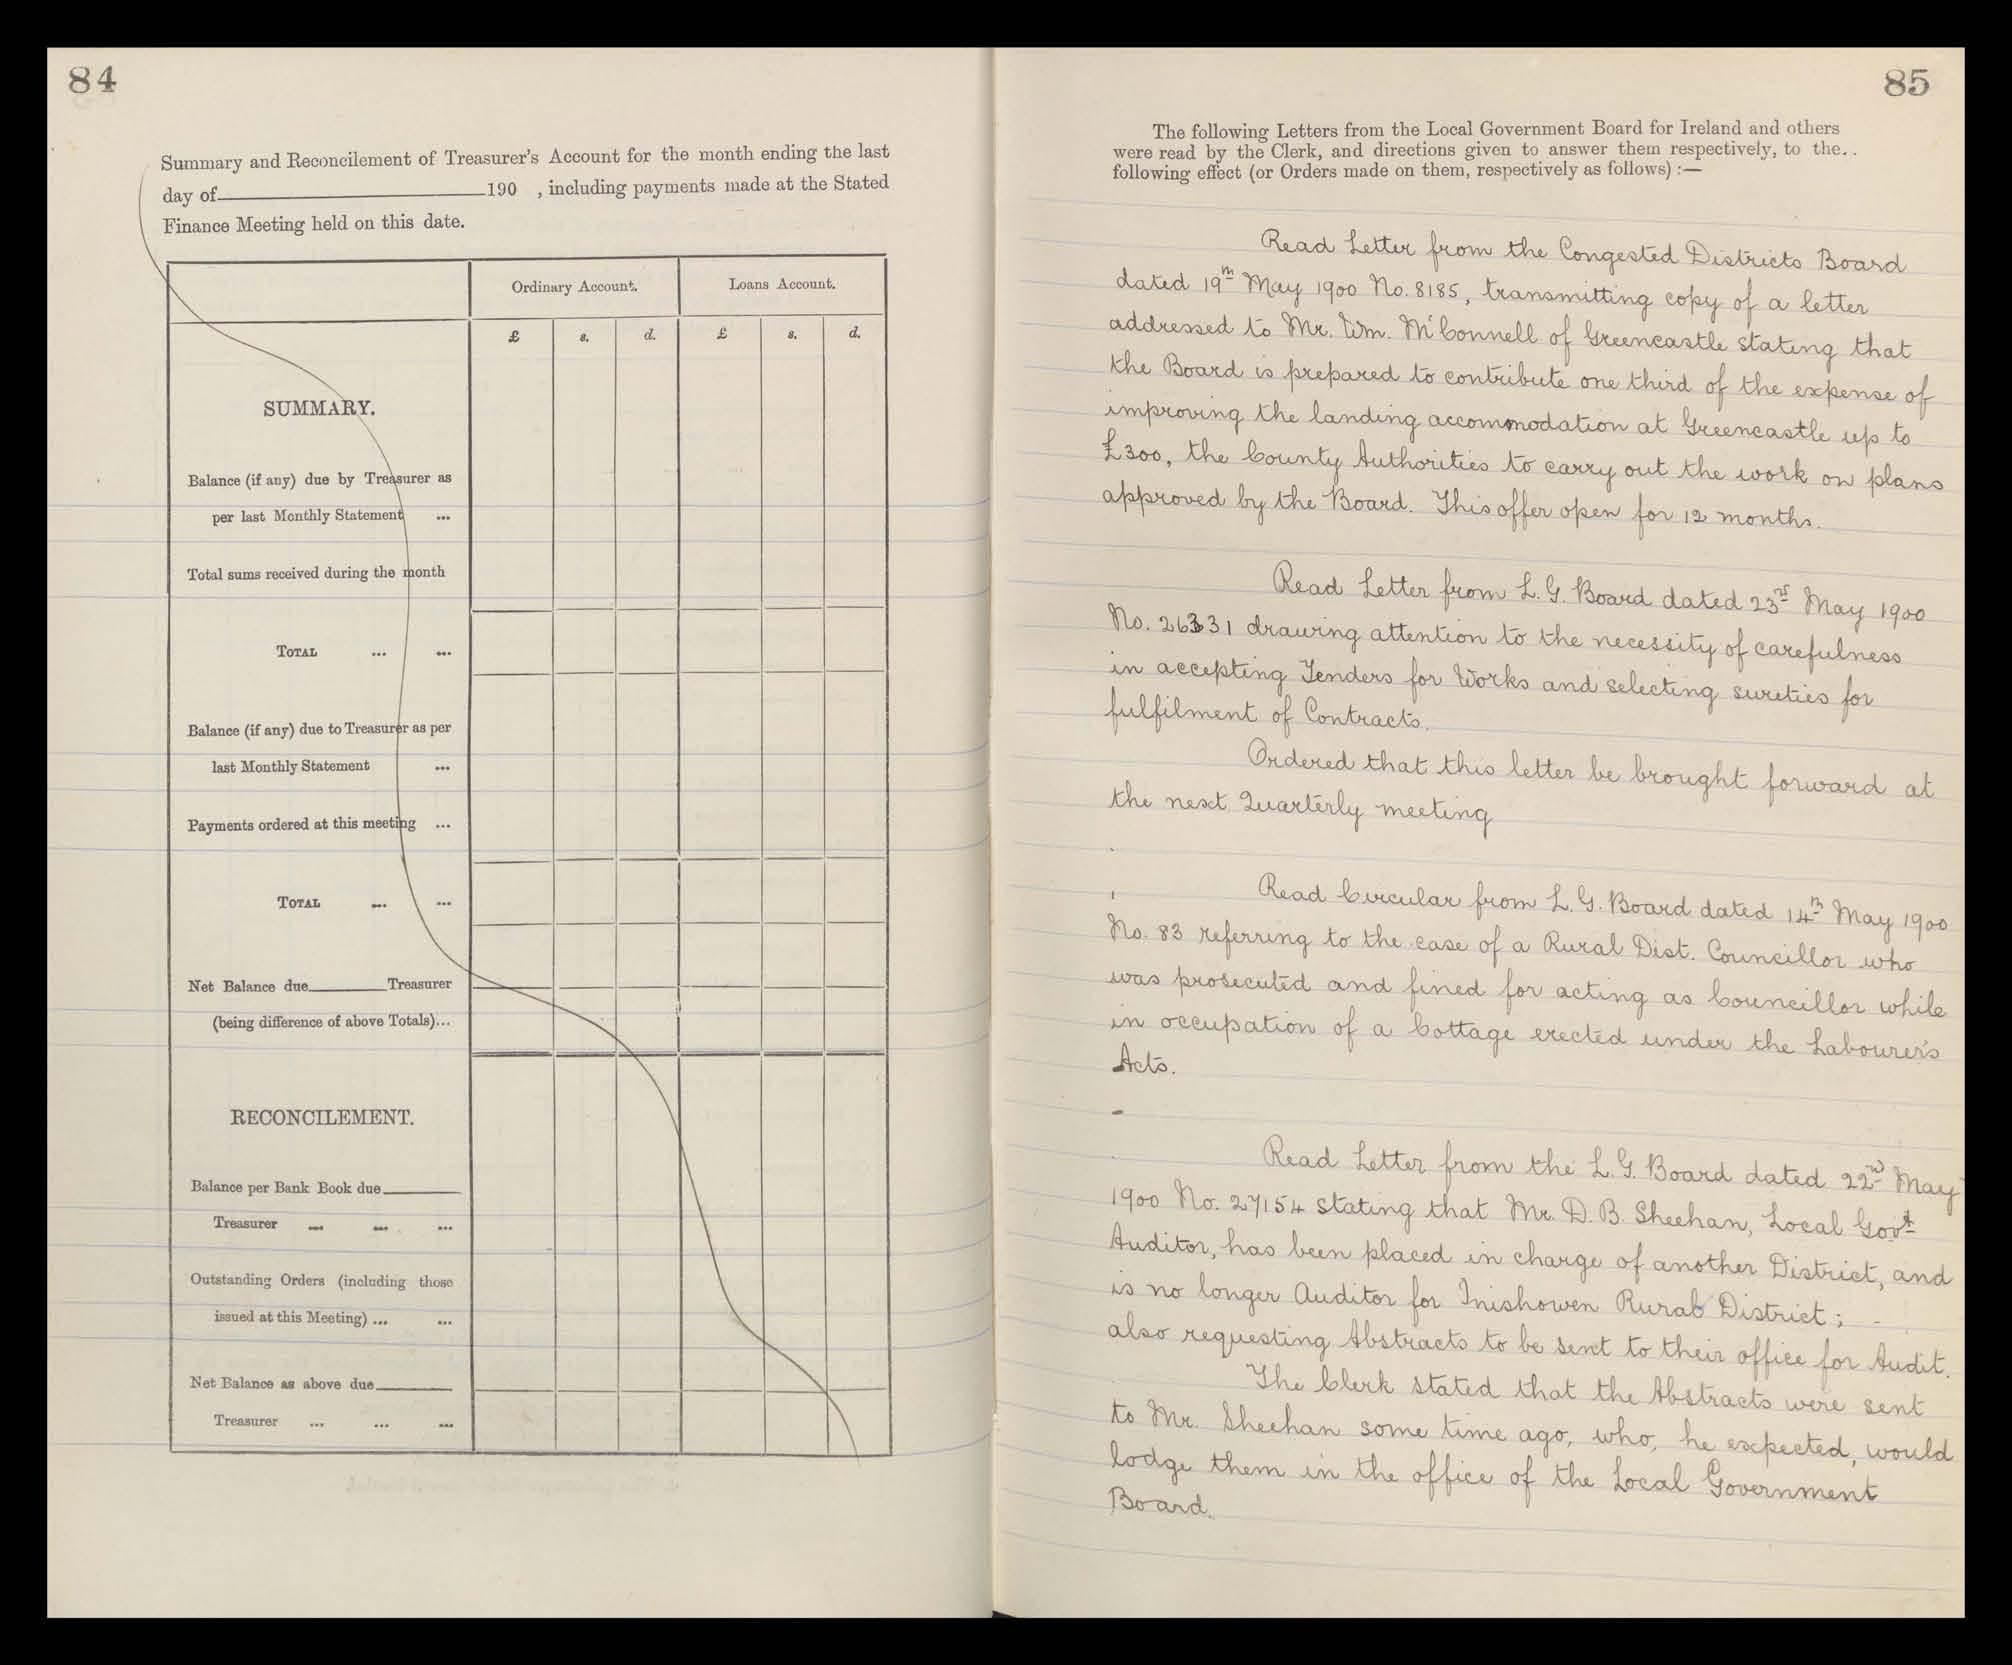 84
Summary and Reconcilement of Treasurer's Account for the month ending the last
day of 190 , including payments made at the Stated
Finance Meeting held on this date.
Ordinary Account. Loans Account.
£ s. d. £ s. d.
SUMMARY.
Balance (if any) due by Treasurer as
per last Monthly Statement ...
Total sums received during the month
TOTAL ... ...
Balance (if any) due to Treasurer as per
last Monthly Statement ...
Payments ordered at this meeting ...
TOTAL ... ...
Net Balance due Treasurer
(being difference of above Totals)...
RECONCILEMENT.
Balance per Bank Book due
Treasurer ... ... ...
Outstanding Orders (including those
issued at this Meeting) ... ...
Net Balance as above due
Treasurer ... ... ...
85
The following Letters from the Local Government Board for Ireland and others
were read by the Clerk, and directions given to answer them respectively, to the..
following effect (or Orders made on them, respectively as follows) :—
Read Letter from the Congested Districts Board
dated 19th May 1900 No. 8185, transmitting copy of a letter
addressed to Mr. Wm. McConnell of Greencastle stating that
the Board is prepared to contribute one third of the expense of
improving the landing accommodation at Greencastle up to
£300, the County Authorities to carry out the work on plans
approved by the Board. This offer open for 12 months.
Read Letter from L. G. Board dated 23rd May 1900
No. 26331 drawing attention to the necessity of carefulness
in accepting Tenders for Works and selecting sureties for
fulfilment of Contracts.
Ordered that this letter be brought forward at
the next Quarterly meeting
Read Circular from L. G. Board dated 14th May 1900
No. 83 referring to the case of a Rural Dist. Councillor who
was prosecuted and fined for acting as Councillor while
in occupation of a Cottage erected under the Labourer's
Acts.
Read Letter from the L. G. Board dated 22nd May
1900 No. 27154 stating that Mr. D. B. Sheehan, Local Govt
Auditor, has been placed in charge of another District, and
is no longer Auditor for Inishowen Rural District; -
also requesting Abstracts to be sent to their office for Audit.
The Clerk stated that the Abstracts were sent
to Mr. Sheehan some time ago, who, he expected, would
lodge them in the office of the Local Government
Board.